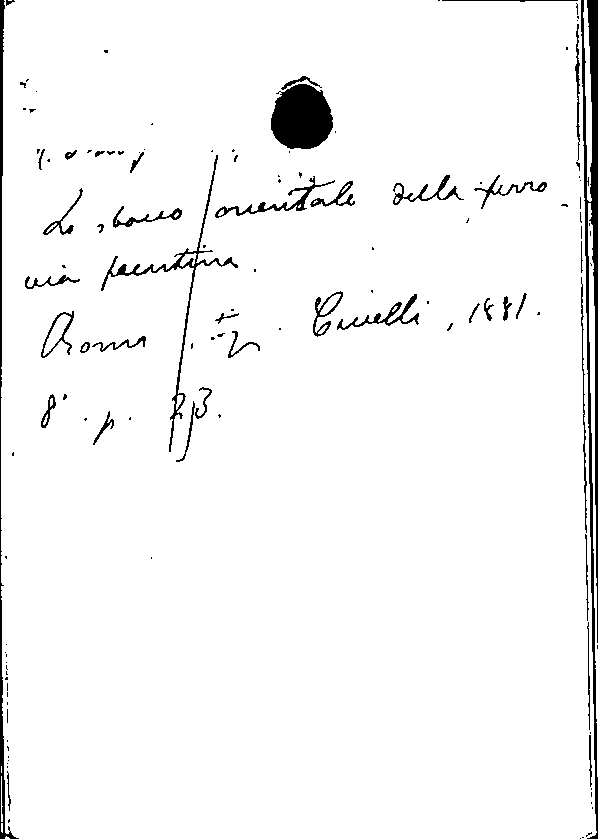 Lo sbocco orientale della ferro-
via faentina.
Roma. tip. Civelli, 1881.
8°. p. 23.